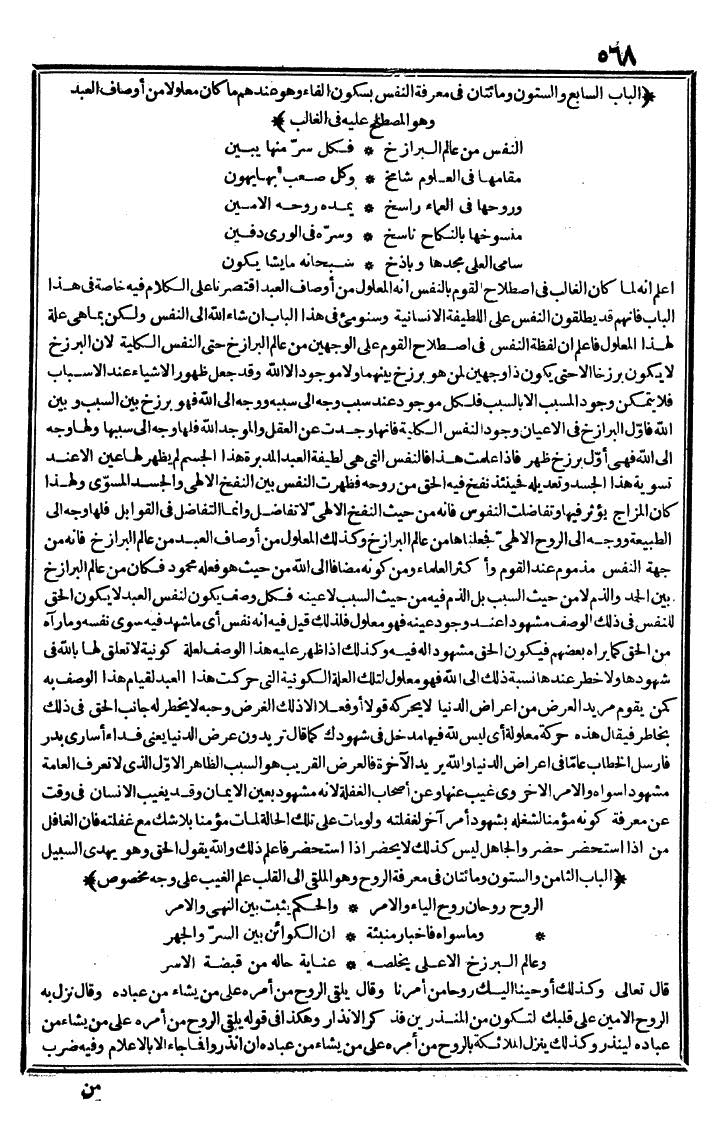 ٥٦٨
﴿الباب السابع والستون ومائتان فى معرفة النفس بسكون الفاء وهو عندهم ما كان معلولا من أوصاف العبد
وهو المصطلح عليه فى الغالب﴾
النفس من عالم البرازخ * فكل سرّ منها يبين
مقامها فى العلوم شامخ * وكل صعب بها يهون
وروحها فى العماء راسخ * يمده روحه الامين
منسوخها بالنكاح ناسخ * وسرّه فى الورى دفين
سامى العلى مجدها وباذخ * سبحانه مايشا يكون
اعلم انه لما كان الغالب فى اصطلاح القوم بالنفس انه المعلول من أوصاف العبد اقتصرنا على الكلام فيه خاصة فى هذا
الباب فانهم قد يطلقون النفس على اللطيفة الانسانية وسنومئ فى هذا الباب ان شاء الله الى النفس ولكن بما هى علة
لهذا المعلول فاعلم ان لفظة النفس فى اصطلاح القوم على الوجهين من عالم البرازخ حتى النفس الكلية لان البرزخ
لا يكون برزخا الاحتى يكون ذا وجهين لمن هو برزخ بينهما ولا موجود الا الله وقد جعل ظهور الاشياء عند الاسباب
فلا يتمكن وجود المسبب الا بالسبب فلكل موجود عند سبب وجه الى سببه ووجه الى الله فهو برزخ بين السبب وبين
الله فأوّل البرازخ فى الاعيان وجود النفس الكلية فانها وجدت عن العقل والموجد الله فلها وجه الى سببها ولها وجه
الى الله فهى أوّل برزخ ظهر فاذا علمت هذا فالنفس التى هى لطيفة العبد المدبرة هذا الجسم لم يظهر لها عين الا عند
تسوية هذا الجسد وتعديله فحينئذ نفخ فيه الحق من روحه فظهرت النفس بين النفخ الالهى والجسد المسوّى ولهذا
كان المزاج يؤثر فيها وتفاضلت النفوس فانه من حيث النفخ الالهىّ لا تفاضل وانما التفاضل فى القوابل فلها وجه الى
الطبيعة ووجه الى الروح الالهىّ فجعلناها من عالم البرازخ وكذلك المعلول من أوصاف العبد من عالم البرازخ فانه من
جهة النفس مذموم عند القوم وأكثر العلماء ومن كونه مضافا الى الله من حيث هو فعله محمود فكان من عالم البرازخ
بين الحمد والذم لا من حيث السبب بل الذم فيه من حيث السبب لا عينه فكل وصف يكون لنفس العبد لا يكون الحق
للنفس فى ذلك الوصف مشهودا عند وجود عينه فهو معلول فلذلك قيل فيه انه نفس أى ما شهد فيه سوى نفسه وما رآه
من الحق كما يراه بعضهم فيكون الحق مشهودا له فيه وكذلك اذا ظهر عليه هذا الوصف لعلة كونية لا تعلق لها بالله فى
شهودها ولا خطر عندها نسبة ذلك الى الله فهو معلول لتلك العلة الكونية التى حركت هذا العبد لقيام هذا الوصف به
كمن يقوم مريد العرض من اعراض الدنيا لا يحركه قولا أو فعلا الا ذلك الغرض وحبه لا يخطر له جانب الحق فى ذلك
بخاطر فيقال هذه حركة معلولة أى ليس لله فيها مدخل فى شهودك كما قال تريدون عرض الدنيا يعنى فداء أسارى بدر
فارسل الخطاب عامّا فى اعراض الدنيا والله يريد الآخرة فالعرض القريب هو السبب الظاهر الاوّل الذى لا تعرف العامة
مشهودا سواه والامر الاخروى غيب عنها وعن أصحاب الغفلة لانه مشهود بعين الايمان وقد يغيب الانسان فى وقت
عن معرفة كونه مؤمنا لشغله بشهود أمر آخر لغفلته ولومات على تلك الحالة لمات مؤمنا بلا شك مع غفلته فان الغافل
من اذا استحضر حضر والجاهل ليس كذلك لا يحضر اذا استحضر فاعلم ذلك والله يقول الحق وهو يهدى السبيل
﴿الباب الثامن والستون ومائتان فى معرفة الروح وهو الملقى الى القلب علم الغيب على وجه مخصوص﴾
الروح روحان روح الياء والامر * والحكم يثبت بين النهى والامر
* وما سواه فاخبار منبئة * ان الكوائن بين السرّ والجهر
وعالم البرزخ الاعلى يخلصه * عناية حاله من قبضة الاسر
قال تعالى وكذلك أوحينا اليك روحا من أمرنا وقال يلقى الروح من أمره على من يشاء من عباده وقال نزل به
الروح الامين على قلبك لتكون من المنذرين فذكر الانذار وهكذا فى قوله يلقى الروح من أمره على من يشاء من
عباده لينذر وكذلك ينزل الملائكة بالروح من أمره على من يشاء من عباده ان انذروا فماجاء الا بالاعلام وفيه ضرب
من